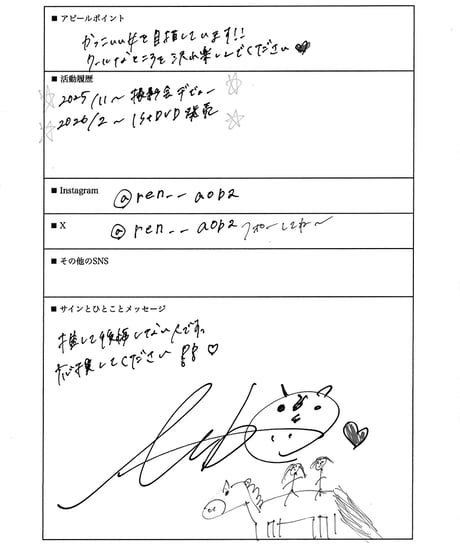 ■ アピールポイント
かっこいい女を目指しています!!
クールなところを沢山楽しんでください♥
■ 活動履歴
2025/11〜 撮影会デビュー
2026/2〜 1st DVD 発売
■ Instagram
@ren__aob2
■ X
@ren__aob2 フォローしてね〜
■ その他のSNS
■ サインとひとことメッセージ
推して後悔しない人ですっ
応援してください!!♡